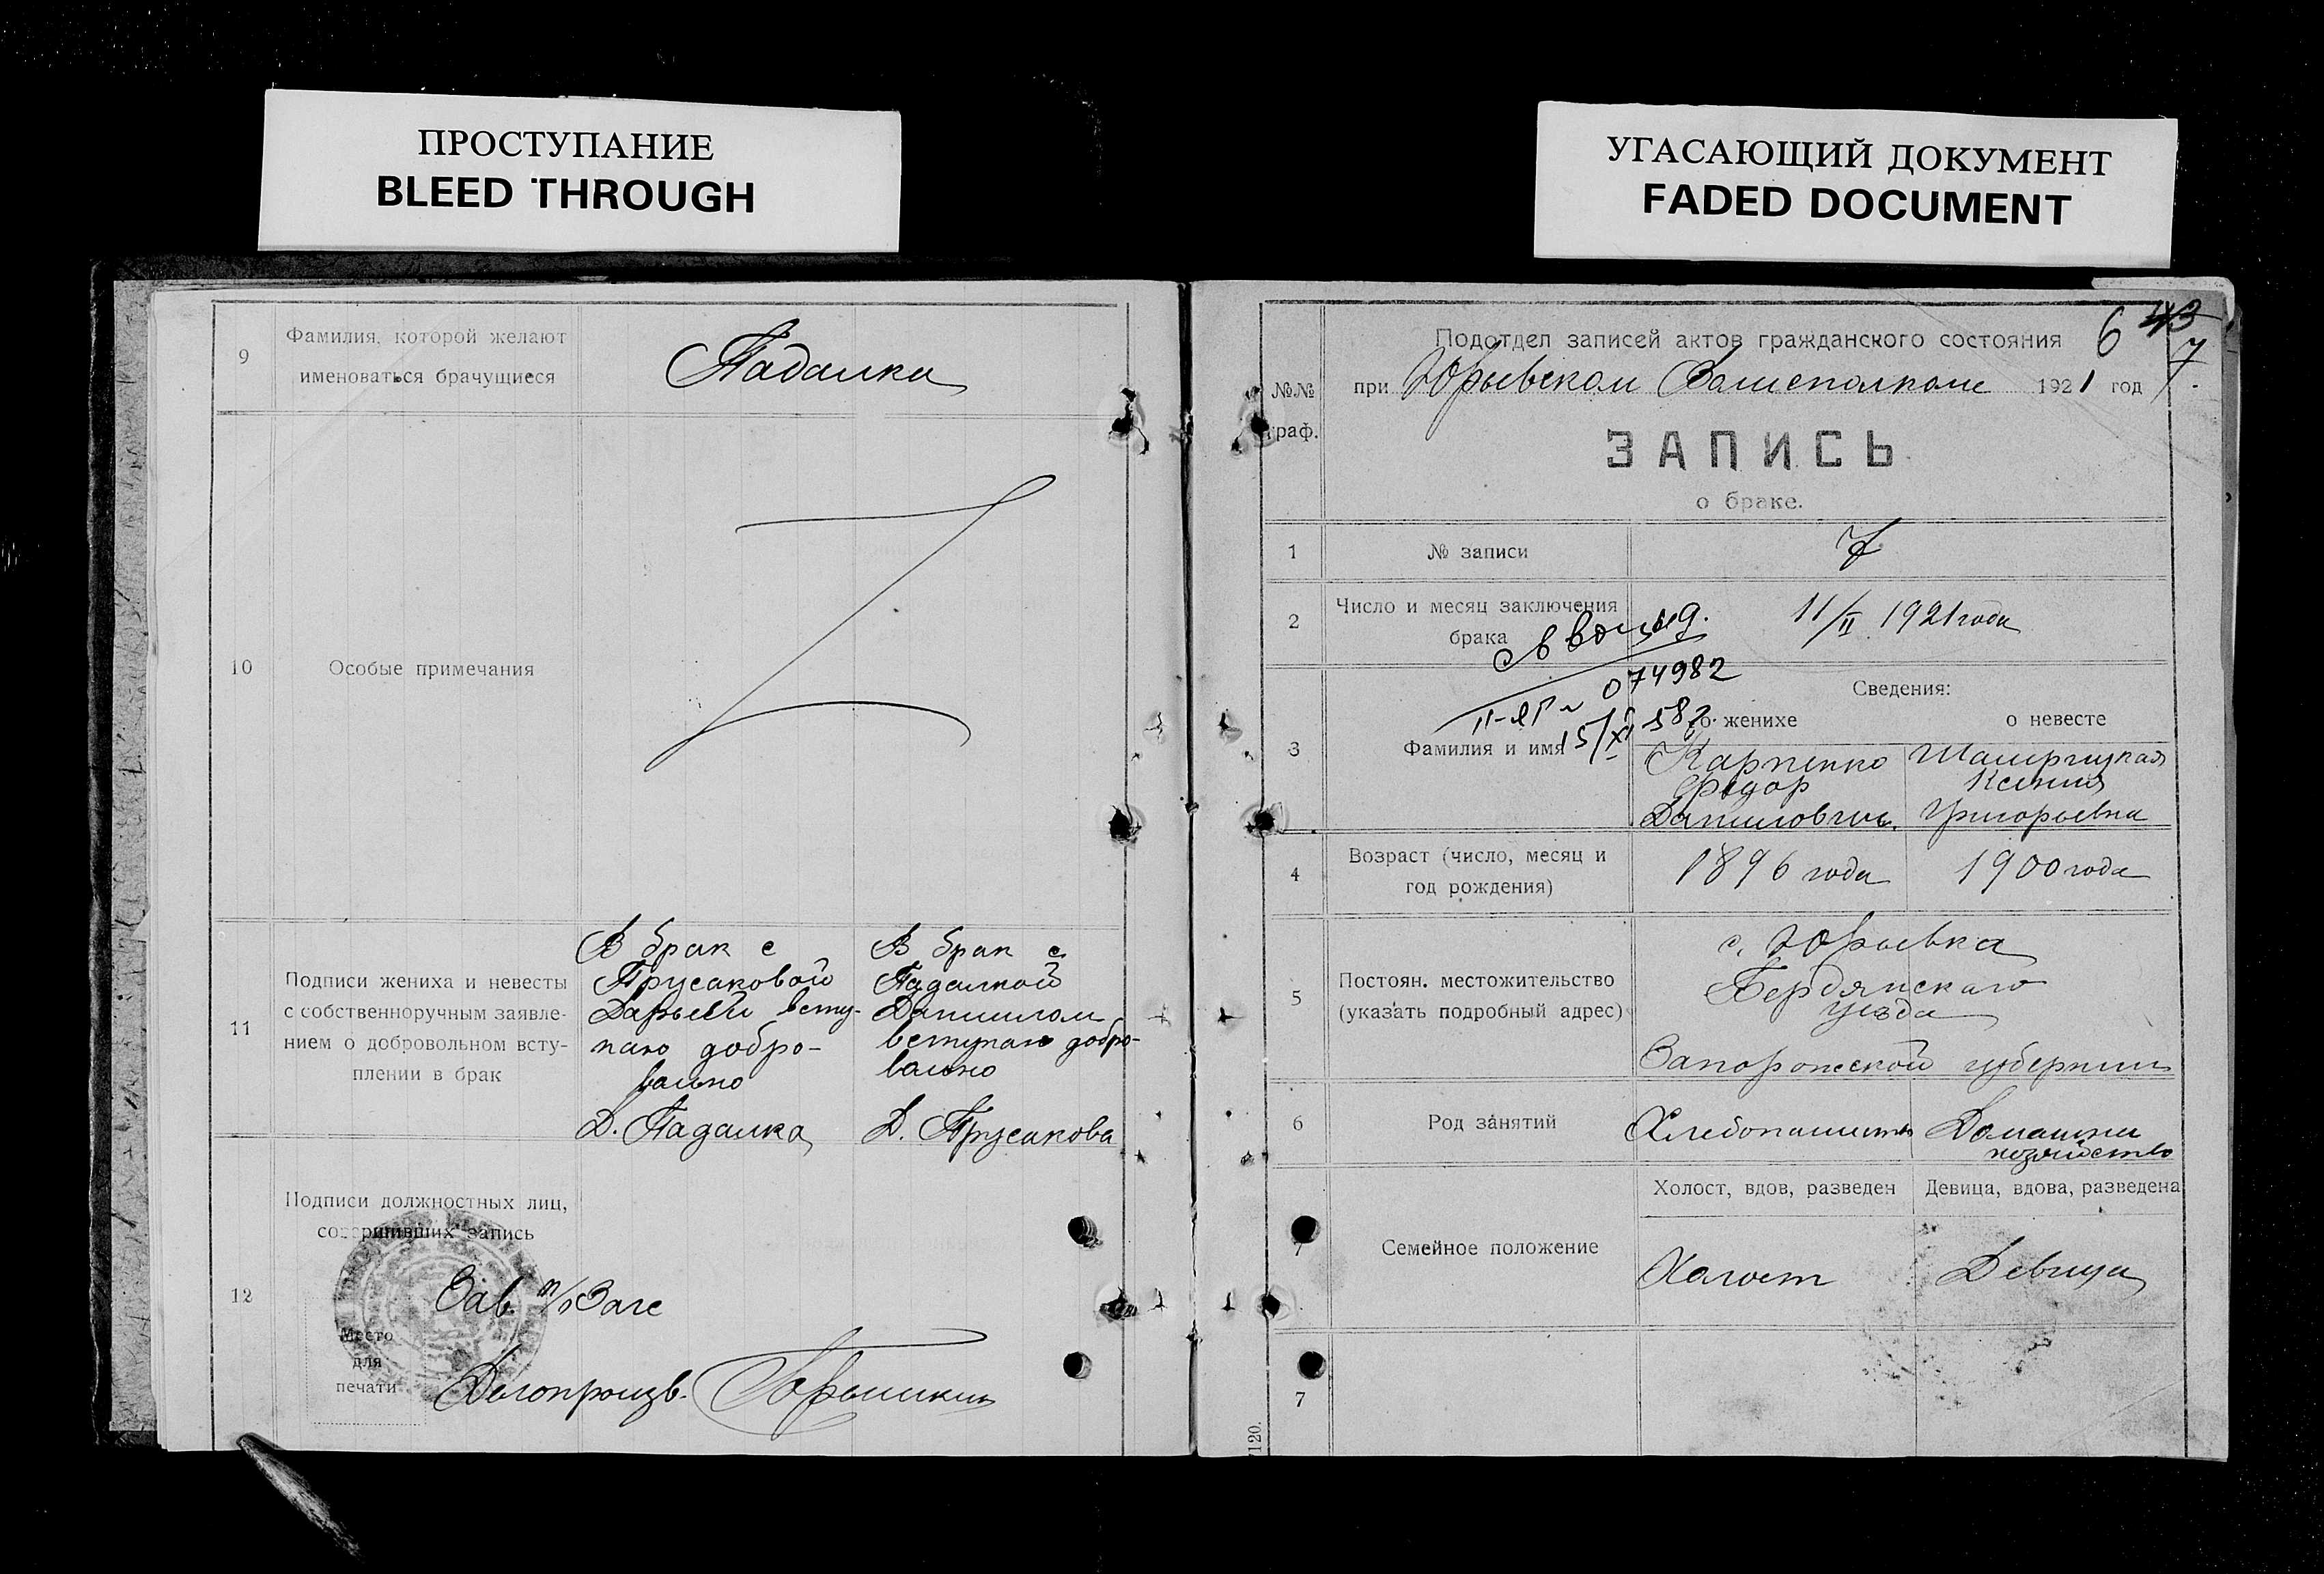 ПРОСТУПАНИЕ
BLEED THROUGH
УГАСАЮЩИЙ ДОКУМЕНТ
FADED DOCUMENT
9
Фамилия, которой желают
именоваться брачущиеся
Падалка
10
Особые примечания
11
Подписи жениха и невесты
с собственноручным заявле-
нием о добровольном всту-
плении в брак
В брак с
Прусаковой
Дарьей всту-
паю добро-
вольно
Д. Падалка
В брак с
Падалкой
Даниилом
вступаю добро-
вольно
Д. Прусакова
12
Подписи должностных лиц,
совершивших запись
Зав. п/о Загс
Место
для
печати
Делопроизв.
6 43
7
№№
граф.
Подотдел записей актов гражданского состояния
при Юрьевском Волисполкоме 1921 год
ЗАПИСЬ
о браке.
1
№ записи
7
2
Число и месяц заключения
брака
11/II 1921 года
074982
15/XI 58 г.
3
Фамилия и имя
Сведения:
о женихе
о невесте
Карпенко
Федор
Данилович
Ксения
Григорьевна
4
Возраст (число, месяц и
год рождения)
1896 года
1900 года
5
Постоян. местожительство
(указать подробный адрес)
с. Юрьевка
Бердянскаго
уезда
Запорожской губернии
6
Род занятий
Хлебопашество
Домашнее
хозяйство
7
Семейное положение
Холост, вдов, разведен
Девица, вдова, разведена
Холост
Девица
7
7120.